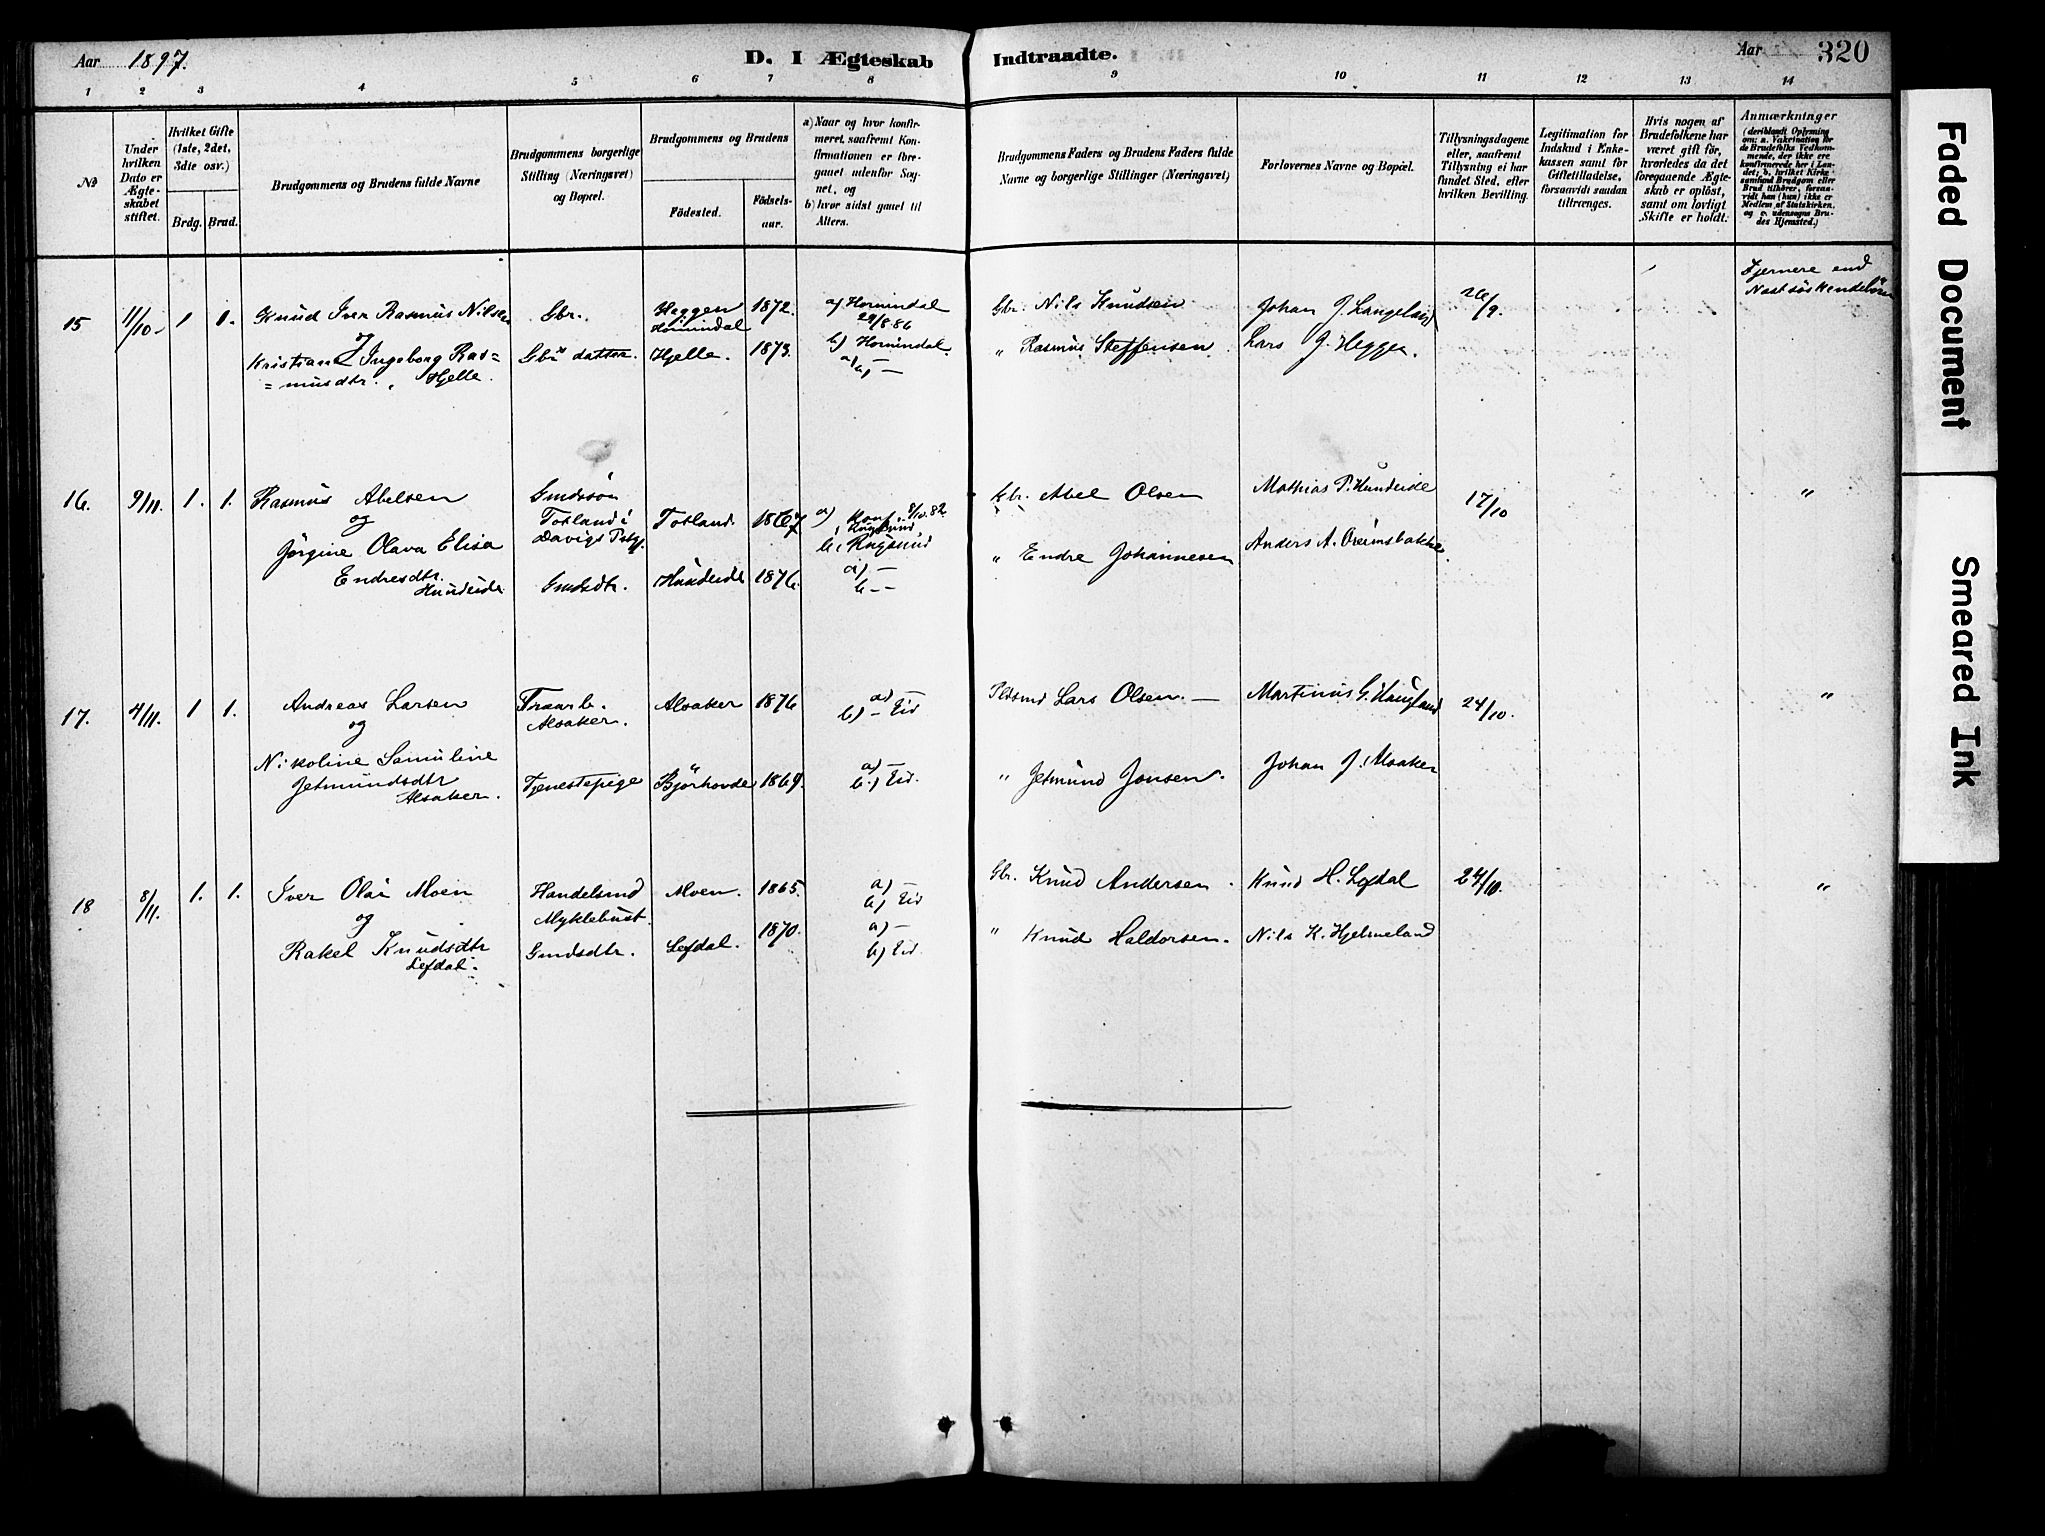 Aar 1897.
D. I Ægteskab Indtraadte.
Aar 320
1 2 3 4 5 6 7 8 9 10 11 12 13 14
№
Under hvilken Dato er Ægteskabet stiftet.
Hvilket Gifte (1ste, 2det, 3die osv.)
Brdg. Brud.
Brudgommens og Brudens fulde Navne
Brudgommens borgerlige Stilling (Næringsvei) og Bopæl.
Brudgommens og Brudens
Födested.
Födselsaar.
a) Naar og hvor konfirmeret, saafremt Konfirmationen er foregaaet udenfor Sognet, og
b) hvor sidst gaaet til Alters.
Brudgommens Faders og Brudens Faders fulde Navne og borgerlige Stillinger (Næringsvei)
Forlovernes Navne og Bopæl.
Tillysningsdagene eller, saafremt Tillysning ei har fundet Sted, efter hvilken Bevilling.
Legitimation for Indskud i Enkekassen samt for Giftetilladelse, forsaavidt saadan tiltrænges.
Hvis nogen af Brudefolkene har været gift før, hvorledes da det foregaaende Ægteskab er oplöst, samt om lovligt Skifte er holdt.
Anmærkninger
(deriblandt Oplysning om: a. Vakcination for de Brudefolks Vedkommende, der ikke ere konfirmerede her i Landet; b. hvilket Kirkesamfund Brudgom eller Brud tilhörer, forsaavidt han (hun) ikke er Medlem af Statskirken, og c. udensogns Brudes Hjemsted.)
15 11/10 1 1. Knud Iver Rasmus Nilsen Gbr. Heggen Hornindal 1872. a) Hornindal 29/8.86 b) Hornindal. Gbr. Nils Knudsen Johan J. Langeland 26/9. Fjernere end Næstsøskendebørn
og
Kristiane Ingeborg Ras=
=musdtr. Hjelle. Hjelle. 1873. a) b) — " Rasmus Steffensen Lars J. Heggen.
16. 9/11. 1. 1. Rasmus Abelsen Gmdssön Totland i Davigs Totland. 1867 a) konf. 8/10.82. Rugsund b, Rugsund Gbr. Abel Olsen Mathias P. Hundeide 17/10 "
og
Jörgine Olava Elisa
Endresdtr. Hundeide Gmdsdtr. Hundeide 1876. a) — b — " Endre Johannesen Anders A.
17. 4/11. 1 1. Andreas Larsen Alsaker. Alsaker 1876 a) — b) – Eid Lars Olsen. — Martinus G. Haugland 24/10. "
og
Nikoline Samueline
Jetmundsdtr
Alsaker. Tjenestepige Björhovde 1869. a) — b) Eid. " Jetmund Jonsen. Johan J. Alsaker
18 8/11. 1. 1. Iver Olai Moen Handelsmd Myklebust. Moen. 1865. a) — b) Eid Gbr. Knud Andersen. Knud H. Lefdal 24/10. "
og
Rakel Knudsdtr
Lefdal. Gmdsdtr. Lefdal. 1870. a) — b) Eid. " Knud Haldorsen. Nils K. Hjelmeland
Faded Document
Smeared Ink